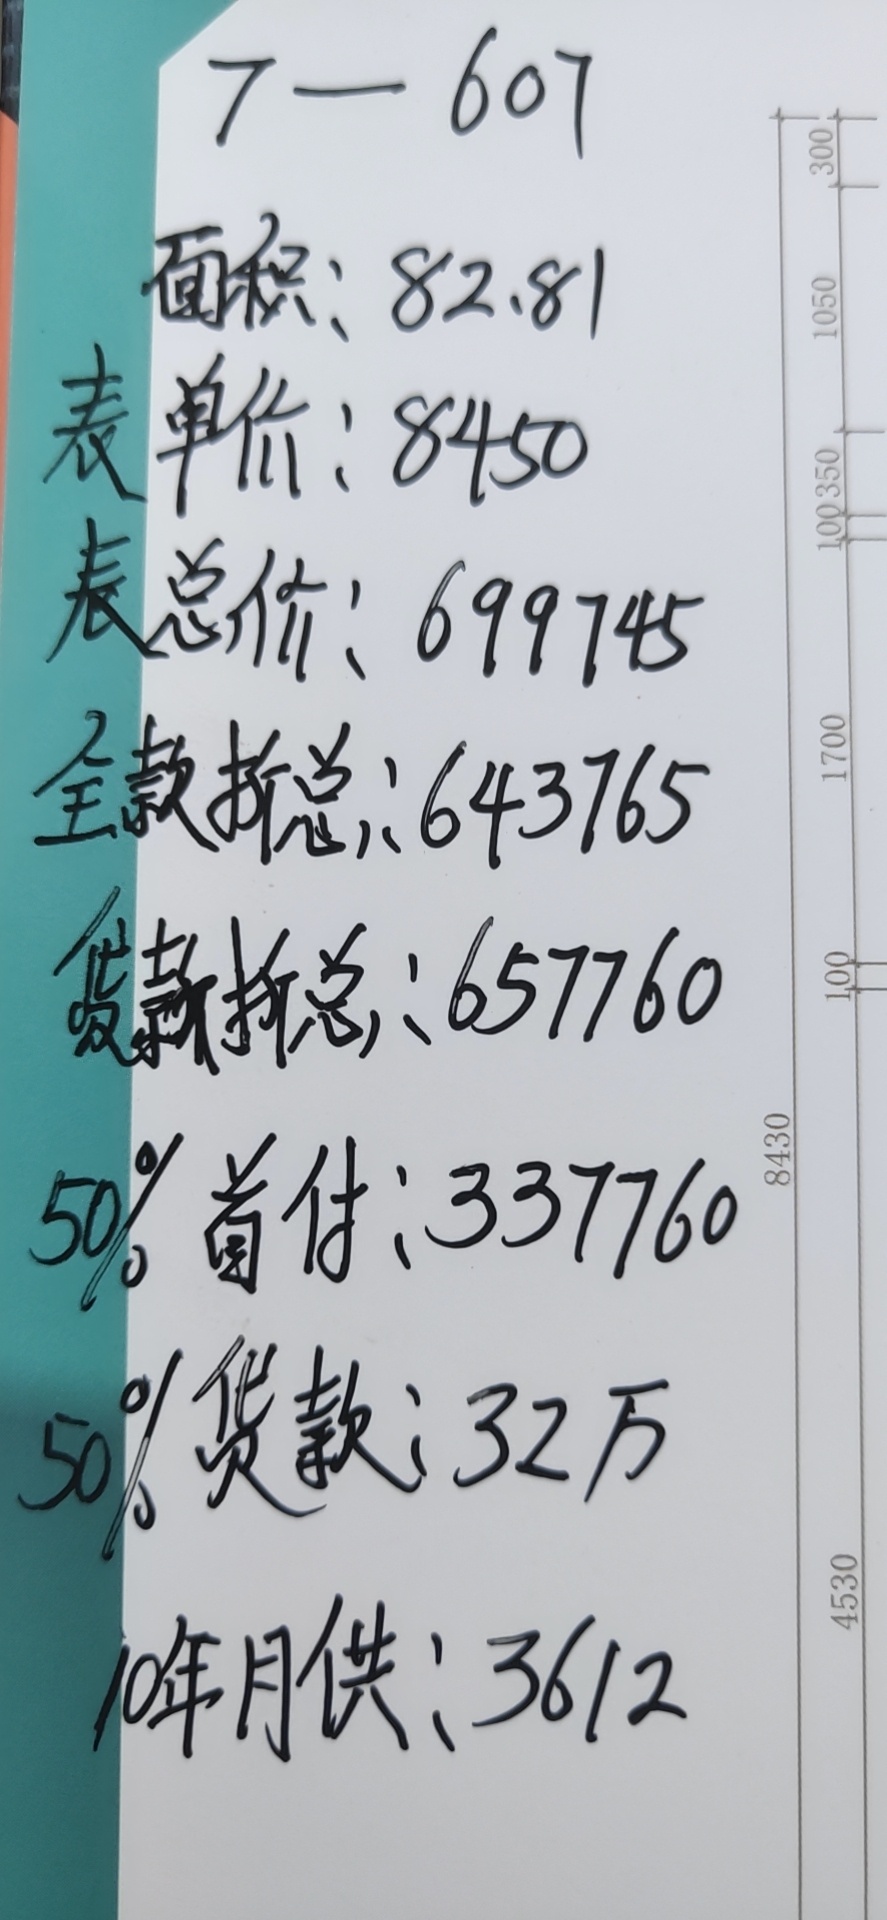 7—607
面积：82.81
表单价：8450
表总价：699745
全款折总：643765
贷款折总：657760
50%首付：337760
50%贷款：32万
10年月供：3612
300
1050
350
100
1700
100
8430
4530